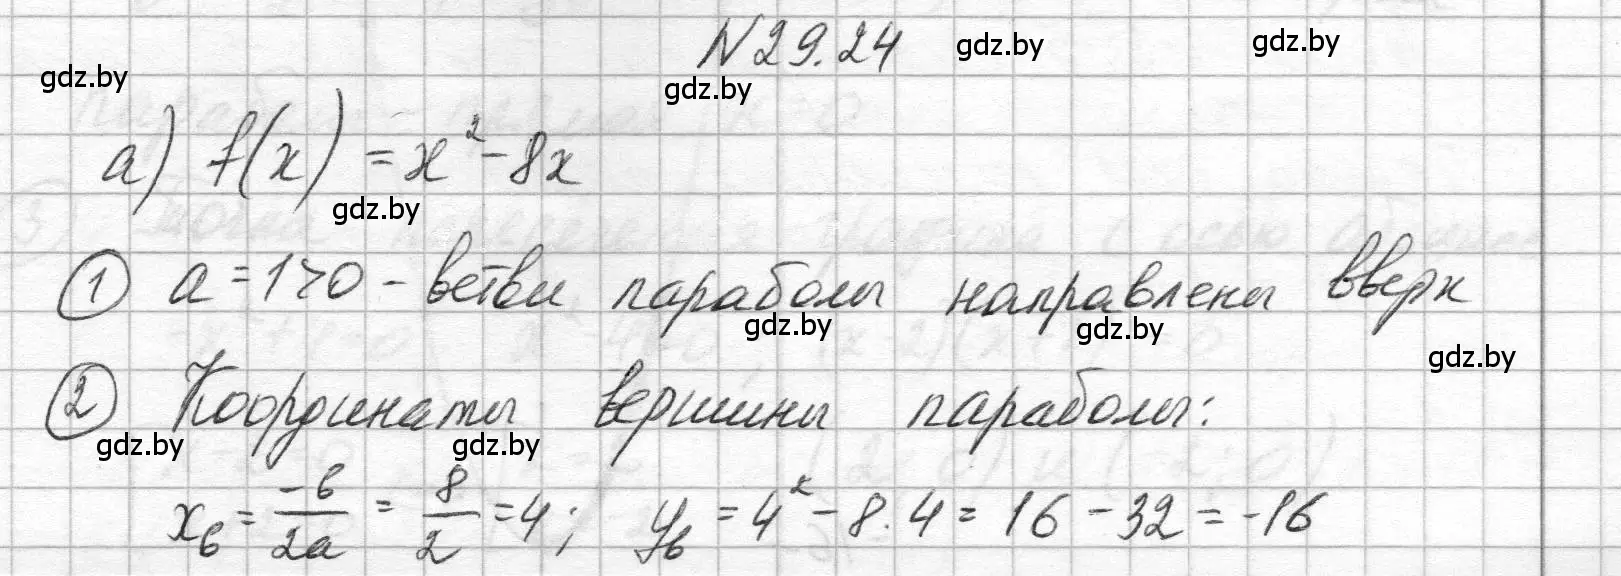 N 29.24 gdz.by gdz.by
gdz.by gdz.by
а) f(x) = x² - 8x
gdz.by
① a = 1 > 0 - ветви параболы направлены вверх
gdz.by gdz.by gdz.by
② Координаты вершины параболы:
gdz.by gdz.by
x_в = -b/2a = 8/2 = 4; y_в = 4² - 8 · 4 = 16 - 32 = -16